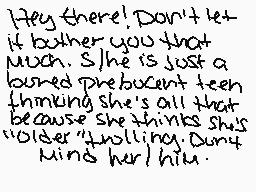 Hey there! Don't let
it bother you that
much. S/he is just a
bored prebucent teen
thinking she's all that
because she thinks she's
"older" trolling. Don't
mind her/him.